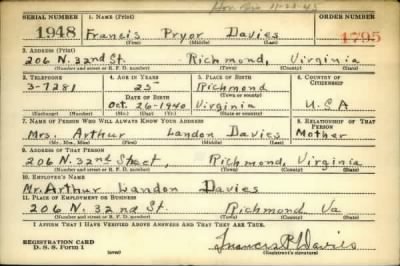 Hon. Dis 11-23-45
SERIAL NUMBER 1. NAME (Print) ORDER NUMBER
1948 Francis Pryor Davies 1795
(First) (Middle) (Last)
2. ADDRESS (Print)
206 N. 32nd St. Richmond, Virginia
(Number and street or R. F. D. number) (Town) (County) (State)
3. TELEPHONE 4. AGE IN YEARS 5. PLACE OF BIRTH 6. COUNTRY OF CITIZENSHIP
3-7281 23 Richmond
DATE OF BIRTH (Town or county)
Oct. 26-1940 Virginia U.S.A
(Exchange) (Number) (Mo.) (Day) (Yr.) (State or country)
7. NAME OF PERSON WHO WILL ALWAYS KNOW YOUR ADDRESS 8. RELATIONSHIP OF THAT PERSON
Mrs. Arthur Landon Davies Mother
(Mr., Mrs., Miss) (First) (Middle) (Last)
9. ADDRESS OF THAT PERSON
206 N. 32nd Street, Richmond, Virginia
(Number and street or R. F. D. number) (Town) (County) (State)
10. EMPLOYER'S NAME
Mr. Arthur Landon Davies
11. PLACE OF EMPLOYMENT OR BUSINESS
206 N. 32nd St. Richmond Va
(Number and street or R. F. D. number) (Town) (County) (State)
I AFFIRM THAT I HAVE VERIFIED ABOVE ANSWERS AND THAT THEY ARE TRUE.
REGISTRATION CARD
D. S. S. Form 1
Francis P. Davies
(Registrant's signature)